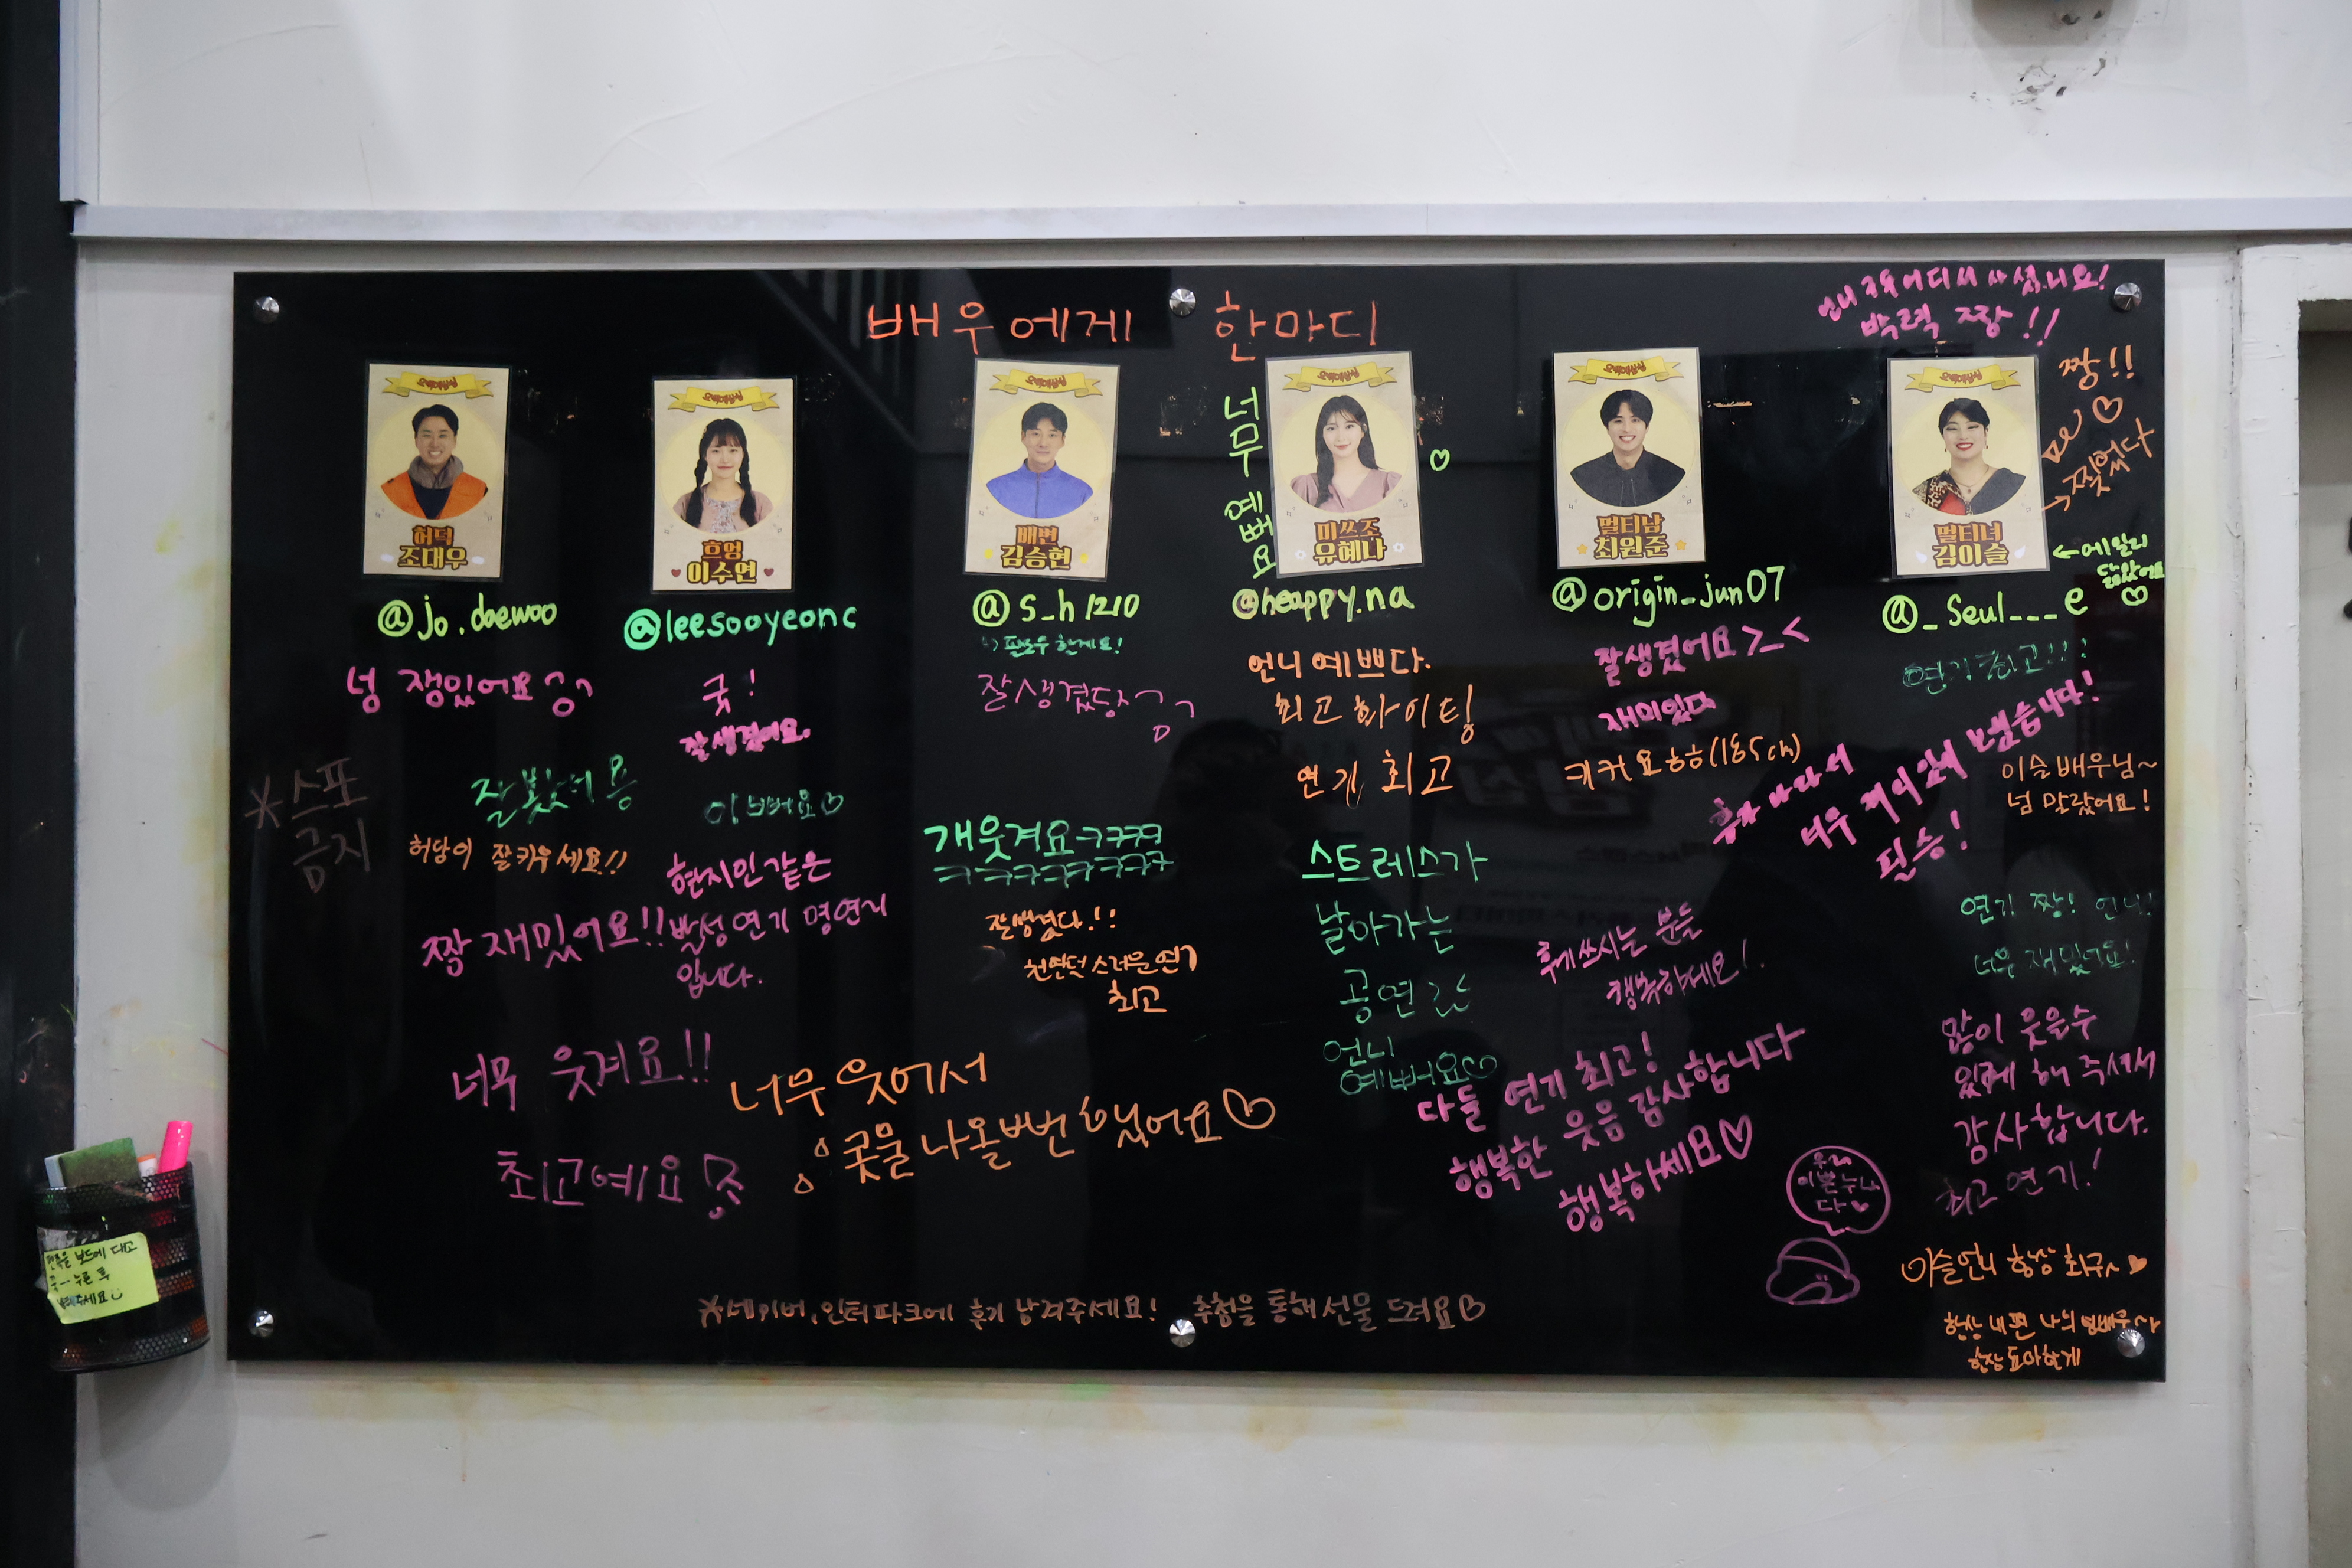 배우에게 한마디
박력 짱!!
짱!!
찢었다
오백에삼십
허덕
조대우
@jo.daewoo
오백에삼십
흐엉
이수연
@leesooyeonc
오백에삼십
배변
김승현
@s_h1210
팔로우 할게요!
오백에삼십
미쓰조
유혜나
@heappy.na
너무 예뻐요
오백에삼십
멀티남
최원준
@origin_jun07
오백에삼십
멀티녀
김이슬
@_seul___e
←에일리
닮았어요
넘 쟁있어요
잘봤어용
허당이 잘키우세요!!
짱 재밌어요!!
※스포
금지
굿!
잘생겼어요.
이뻐요♡
현지인같은
발성 연기 명연기
입니다.
잘생겼당
개웃겨요ㅋㅋㅋㅋ
ㅋㅋㅋㅋㅋㅋㅋ
잘생겼다!!
천연덕스러운연기
최고
언니 예쁘다.
최고 화이팅
연기 최고
스트레스가
날아가는
공연
언니
예뻐요♡
잘생겼어요>_<
재미있다
키커요ㅎㅎ(185cm)
후기쓰시는 분들
행복하세요!
다들 연기 최고!
행복한 웃음 감사합니다
행복하세요♡
연기최고!!!
너무 재미있게 보았습니다!
필승!
이슬배우님~
넘 말랐어요!
연기 짱! 언니!
너무 재밌어요!
많이 웃을수
있게 해 주셔서
감사합니다.
최고 연기!
우리
이쁜누나
다♥
이슬언니 항상 최고~♥
항상 내 편 나의
너무 웃겨요!!
최고예요
너무 웃어서
콧물 나올뻔 했어요♡
※네이버, 인터파크에 후기 남겨주세요! 추첨을 통해 선물 드려요♡
펜촉을 보드에 대고
꾹~ 누른 후